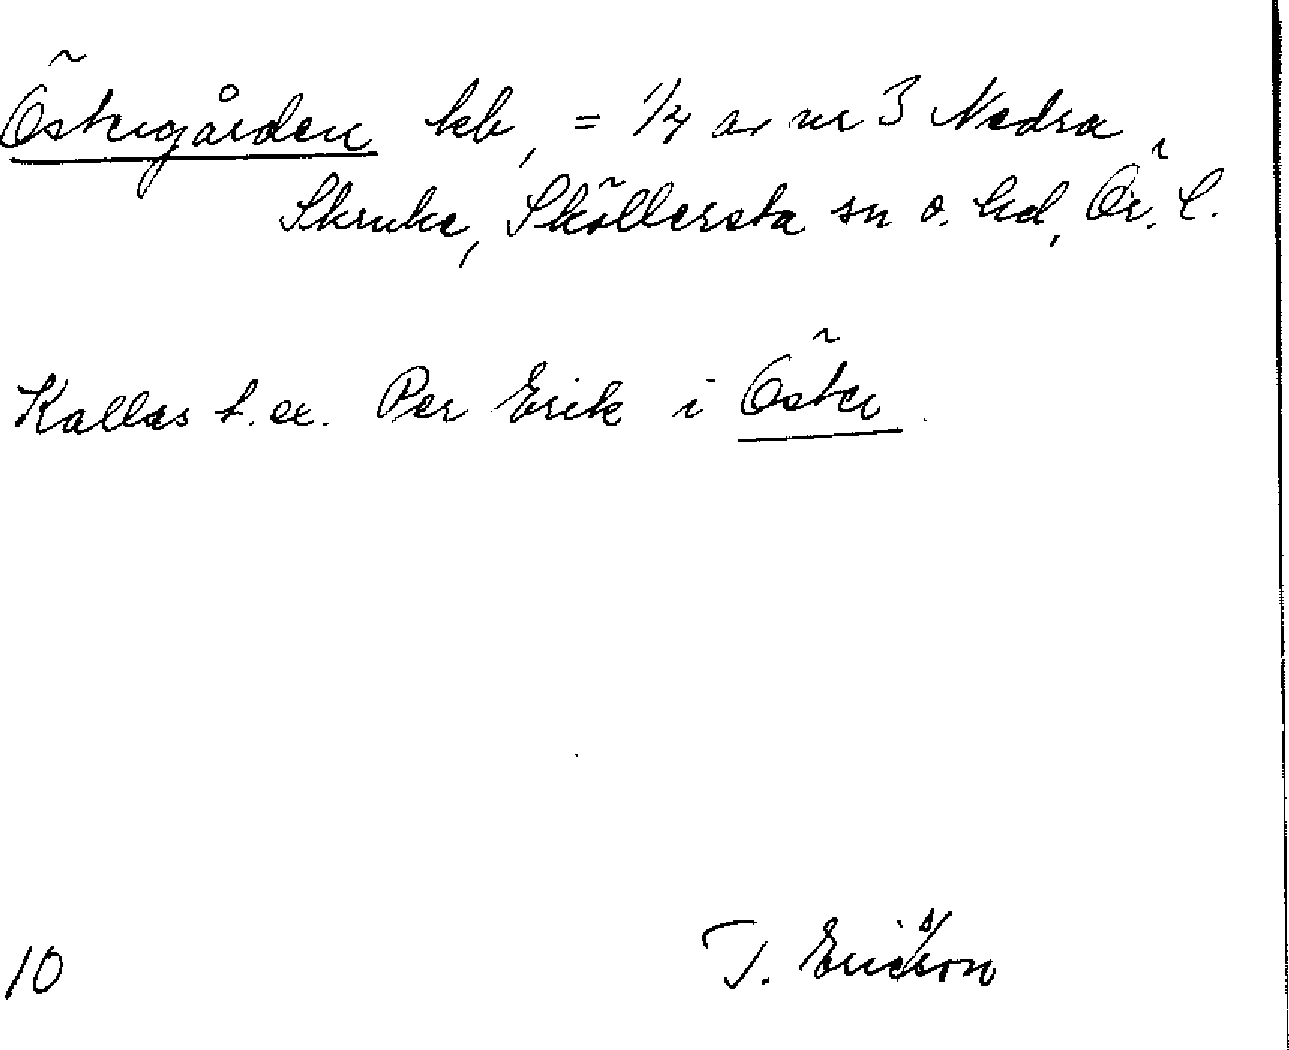 Östergården hb, = 1/4 av nr 3 Nedra
Skruke, Sköllersta sn o. hd, Ör. l.
Kallas t.ex. Per Erik i Öster.
10
T. Ericsson